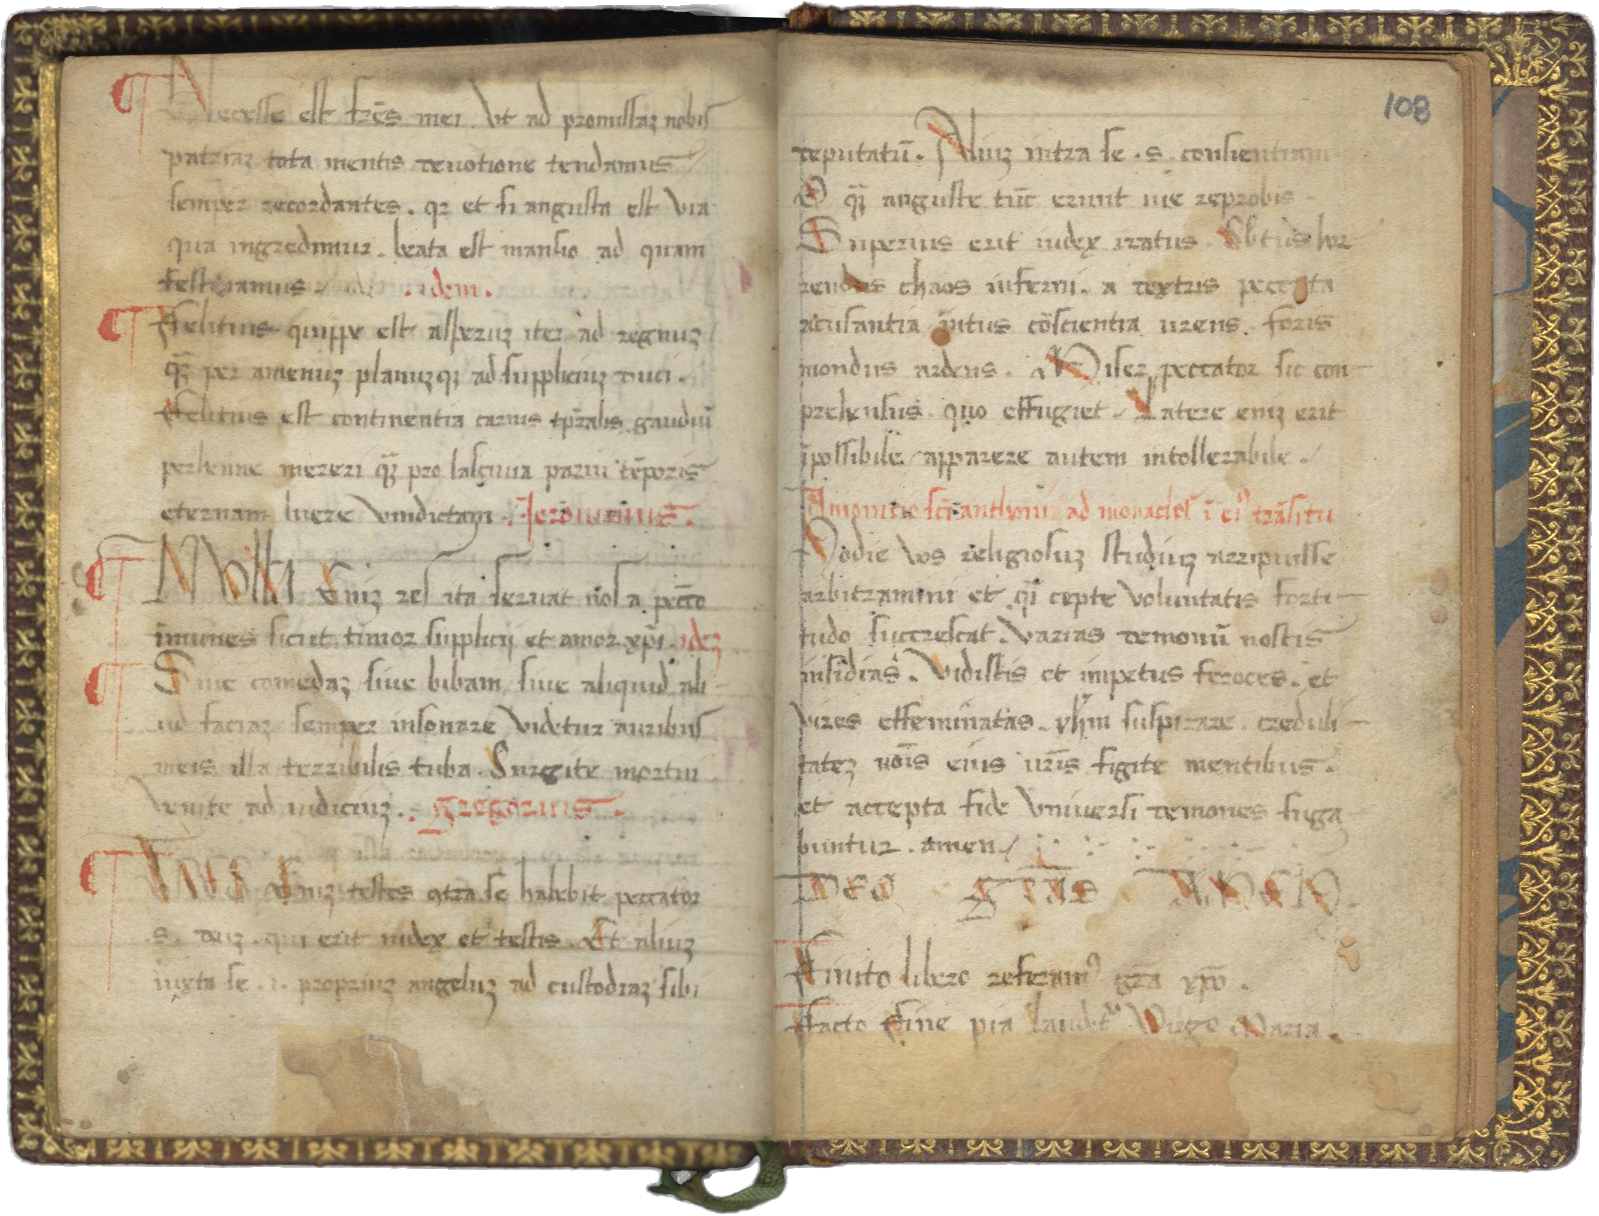 Necesse est frēs mei vt ad promissaz nobis
patriaz tota mentis deuotione tendamus
semper recordantes. qz et si angusta est via
qua ingredimur. beata est mansio ad quam
festinamus idem.
Felitius quippe est asperuz iter ad regnuz
qz̄ per amenuz planuzqz ad suppliciuz duci.
Felitius est continentia carnis tp̄ralis gaudiū
perhenne mereri qz̄ pro lasciuia parui tēporis
eternam luere vindictam. Jeronimus.
Nulla Eniz res ita seruat nos a peccō
īmunes sicut timor supplicij et amor xp̄i. idez
Siue comedaz siue bibam siue aliquid ali-
ud faciaz semper insonare videtur auribus
meis illa terribilis tuba. Surgite mortui
venite ad iudiciuz. Gregorius.
Eniz testes 9tra se habebit peccator
.s. deuz. qui erit iudex et testis. Et aliuz
iuxta se .i. propriuz angeluz ad custodiaz sibi
108
deputatū. Aliuz intra se .s. consientiam
O qz̄ anguste tūc erunt uie reprobis.
Superius erit iudex iratus. Sbtus hor
rendus chaos inferni. a dextris peccata
acusantia intus cōscientia urens. foris
mondus ardens. Miser peccator sic con-
prehensus quo effugiet. Latere eniz erit
īpossibile apparere autem intollerabile.
Amonitio scī anthonii ad monachos ī ei9 trāsitu
Hodie vos religiosuz studiuz arripuisse
arbitramini et qz̄ cepte voluntatis forti-
tudo succrescat. varias demonū nostis
insidias. vidistis et impetus feroces. et
vires effeminatas. yh̄m suspirare. creduli-
tatez nōis eius ur̄is figite mentibus.
et accepta fide vniuersi demones fuga
buntur. amen
DEO GRĀS AMEN.
Finito libero referam9 grā xp̄o.
Facto Fine pia laudetr Virgo Maria.